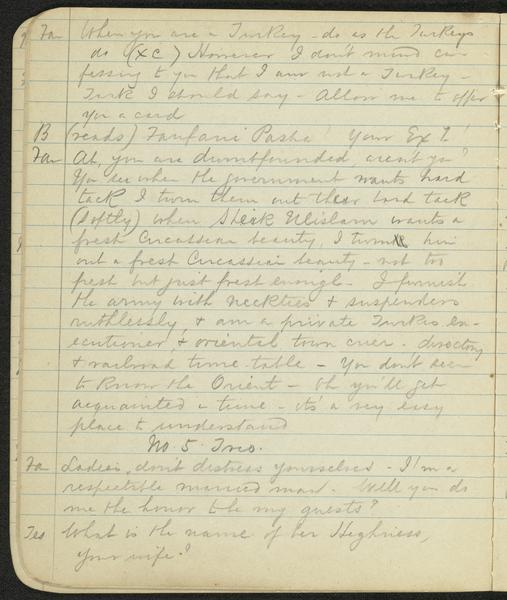 Fan When you are a Turkey - do as the Turkeys
do (XC) However I don't mind con-
fessing to you that I am not a Turkey -
Turk I should say - Allow me to offer
you a card
B (reads) Fanfani Pasha! Your Ex!!
Fan Ah, you are dumbfounded, arent you?
You see when the government wants hard
tack I turn them out their hard tack
(softly) When Sheik Ulislam wants a
fresh Circassian beauty, I turn him
out a fresh Circassian beauty - not too
fresh but just fresh enough - I furnish
the army with neckties & suspenders
ruthlessly, & am a private Turkish ex-
ecutioner, & oriental town crier - directory
& railroad time table - You don't seem
to know the Orient - Oh you'll get
acquainted in time - its a very easy
place to understand
No. 5. Trio.
Fa Ladies, don't distress yourselves - I'm a
respectable married man. Will you do
me the honor to be my guests?
Tes What is the name of her Highness,
your wife?